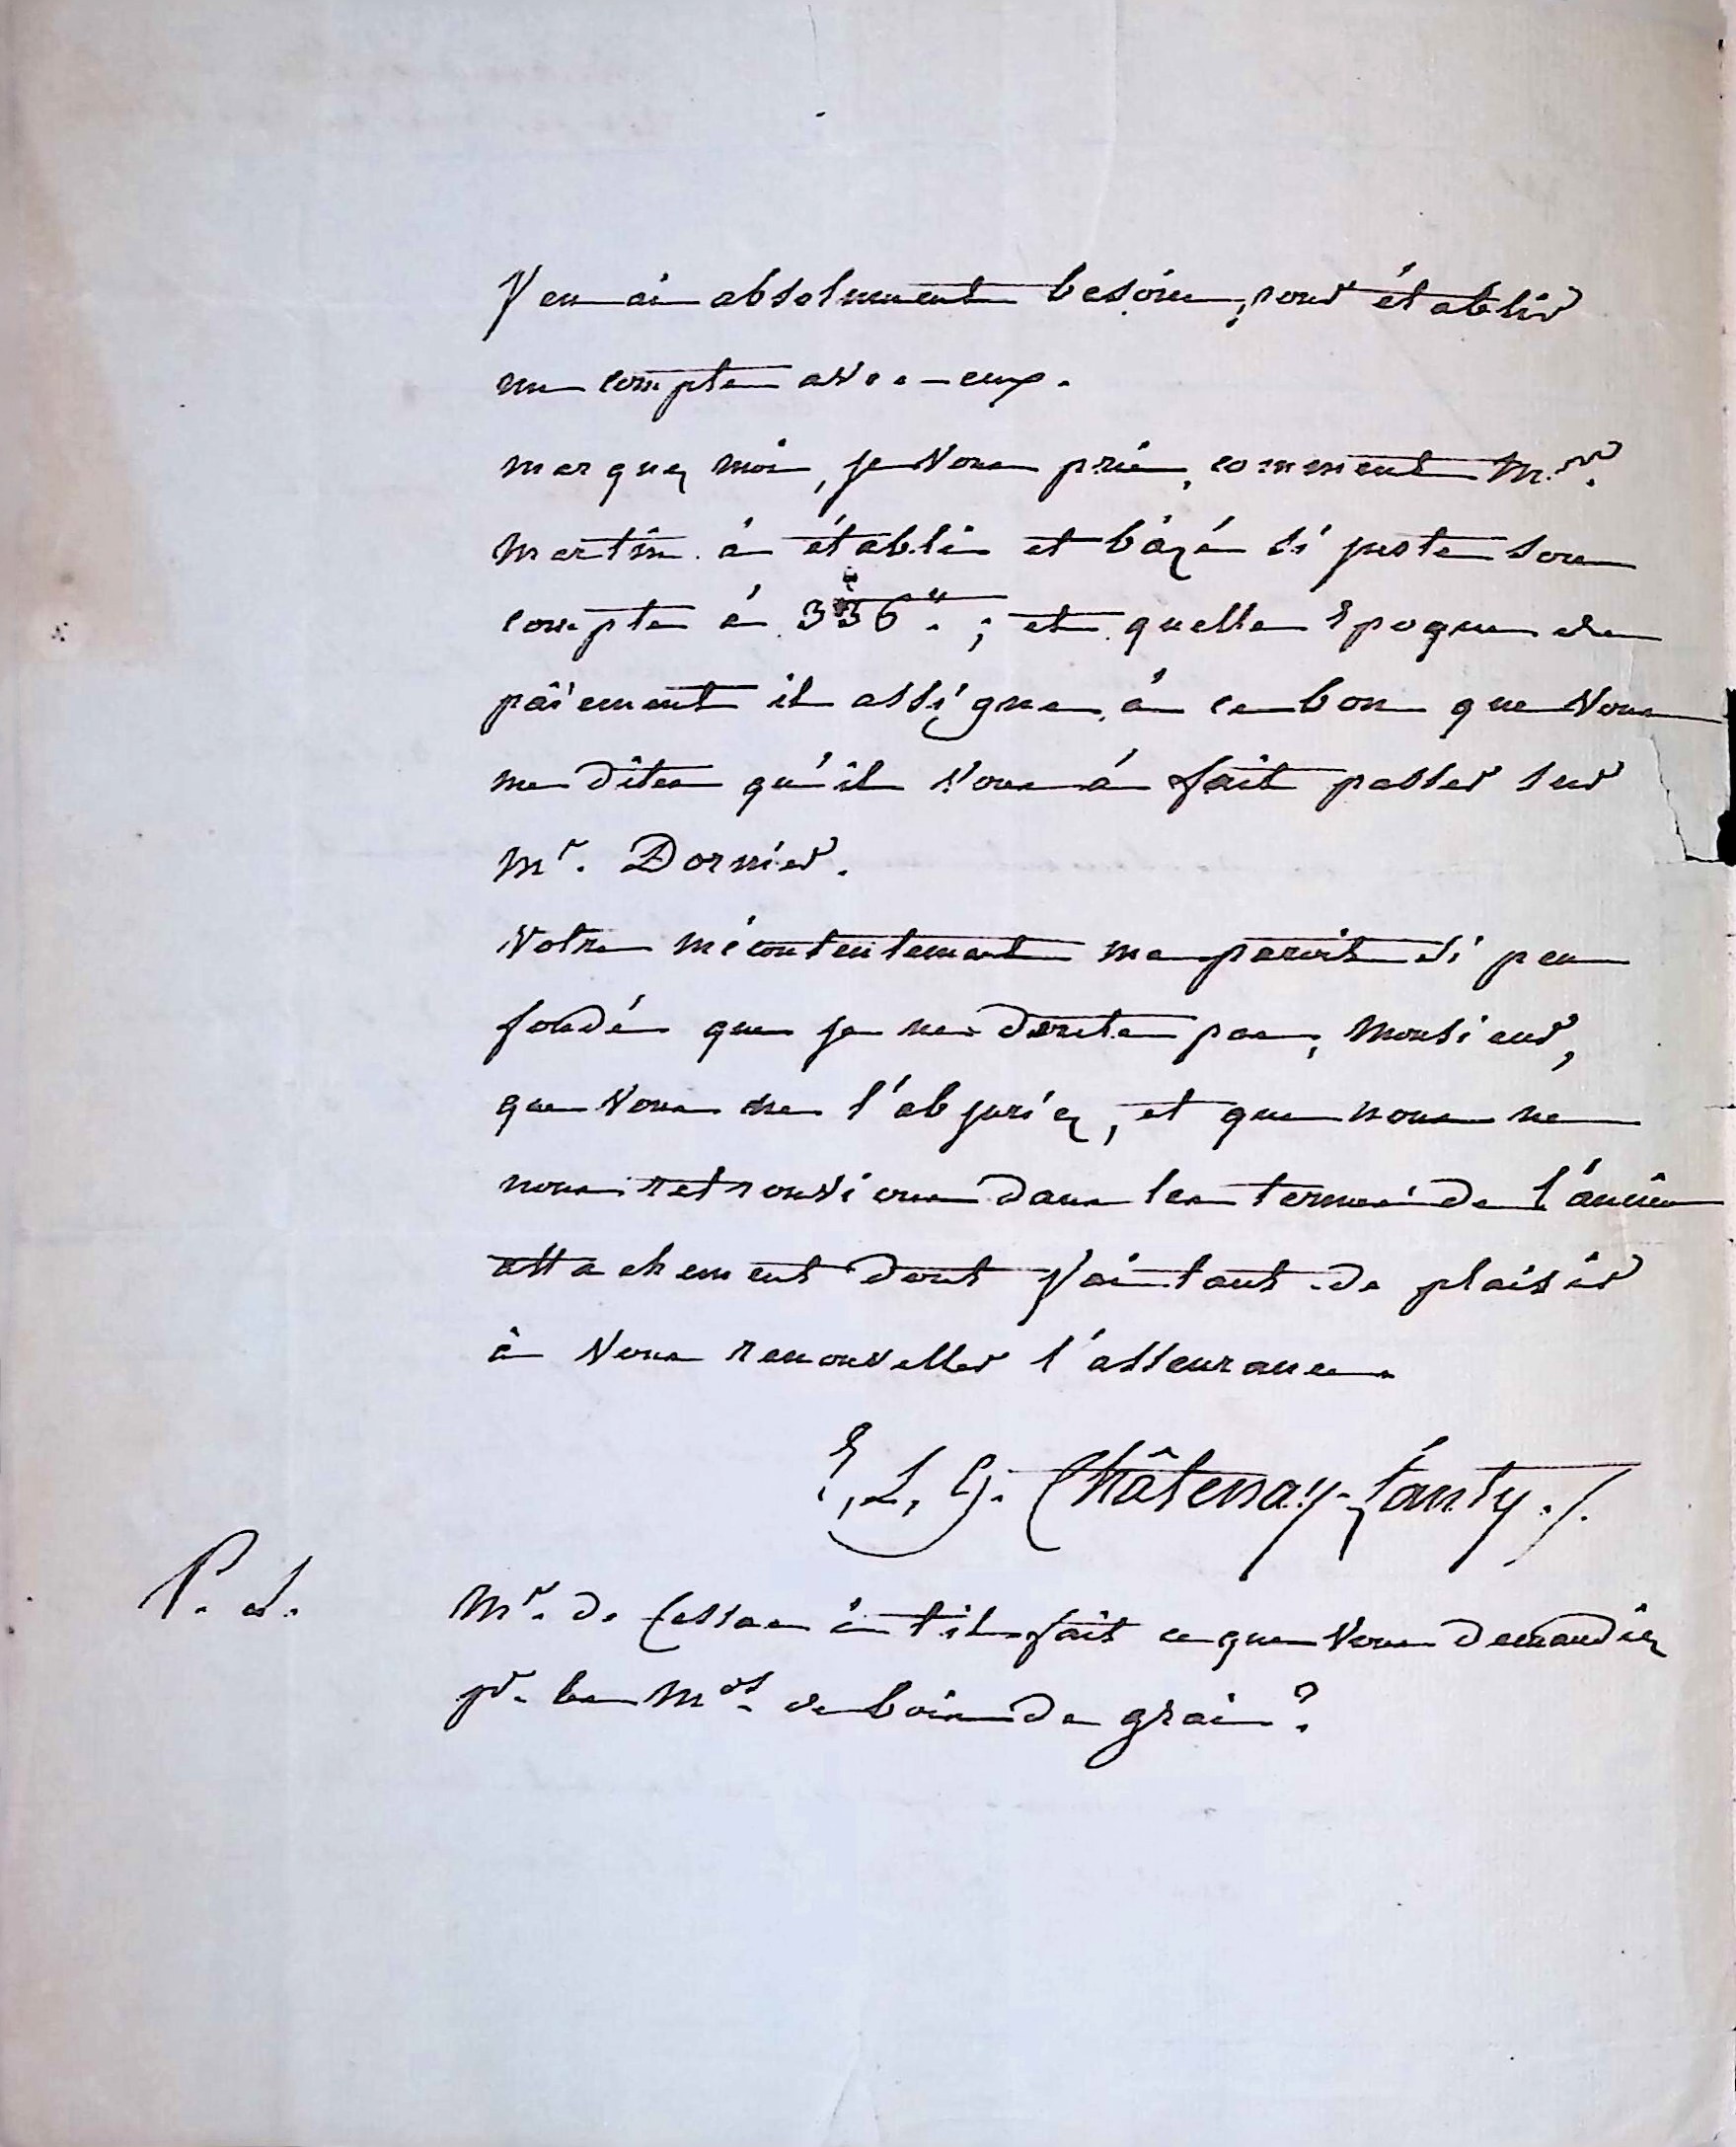 J'en ai absolument besoin, pour établir
un compte avec eux.
marquez moi, je vous prie, comment Mr.
Martin à établi et bâzé si juste son
compte à 336". ; et quelle Epoque de
pâiement il assigne à ce bon que vous
me dîtes qu'il vous à fait passer sur
Mr. Dornier.
Votre mécontentement me paroit si peu
fondé que je ne doute pas, Monsieur,
que vous ne l'abjuriez, et que nous ne
nous retrouvions dans les termes de l'ancien
attachement dont j'ai tant de plaisir
à vous renouveller l'assurance.
E. L. G. Châtenay-Lanty ./.
P. S. Mr. de Cessac à-t'il fait ce que vous demandiez
pr. les Mds. de bois de grai ?